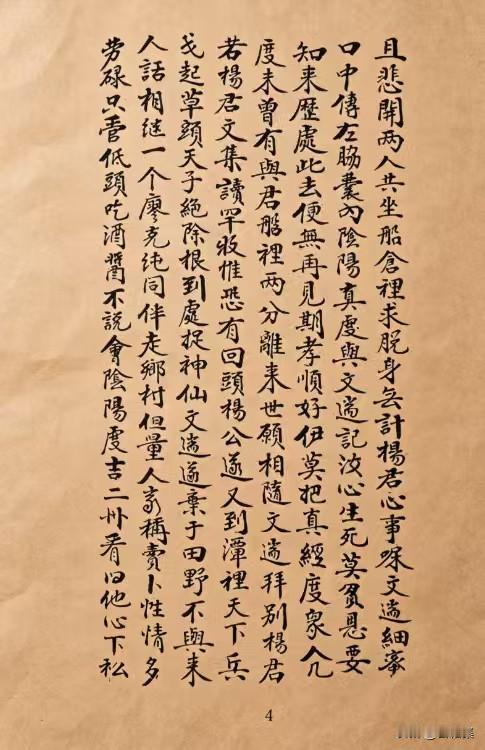 且悲開两人共坐船倉裡求脱身无計楊君心事文遄細審
口中傳左脇囊內陰陽真度與文遄記汝心生死莫負恩要
知来歷處此去便無再見期孝順好伊莫把真經度衆人几
度未曾有與君船裡两分離来世願相隨文遄拜别楊君
若楊君文集讀罕收惟恐有回頭楊公遂又到潭裡天下兵
戈起草頭天子絕除根到處捉神仙文遄遂棄于田野不與来
人話相继一个廖克纯同伴走鄉村但量人家稱賣卜性情多
劳碌只管低頭吃酒醬不說會陰陽虔吉二州看旧他心下松
4